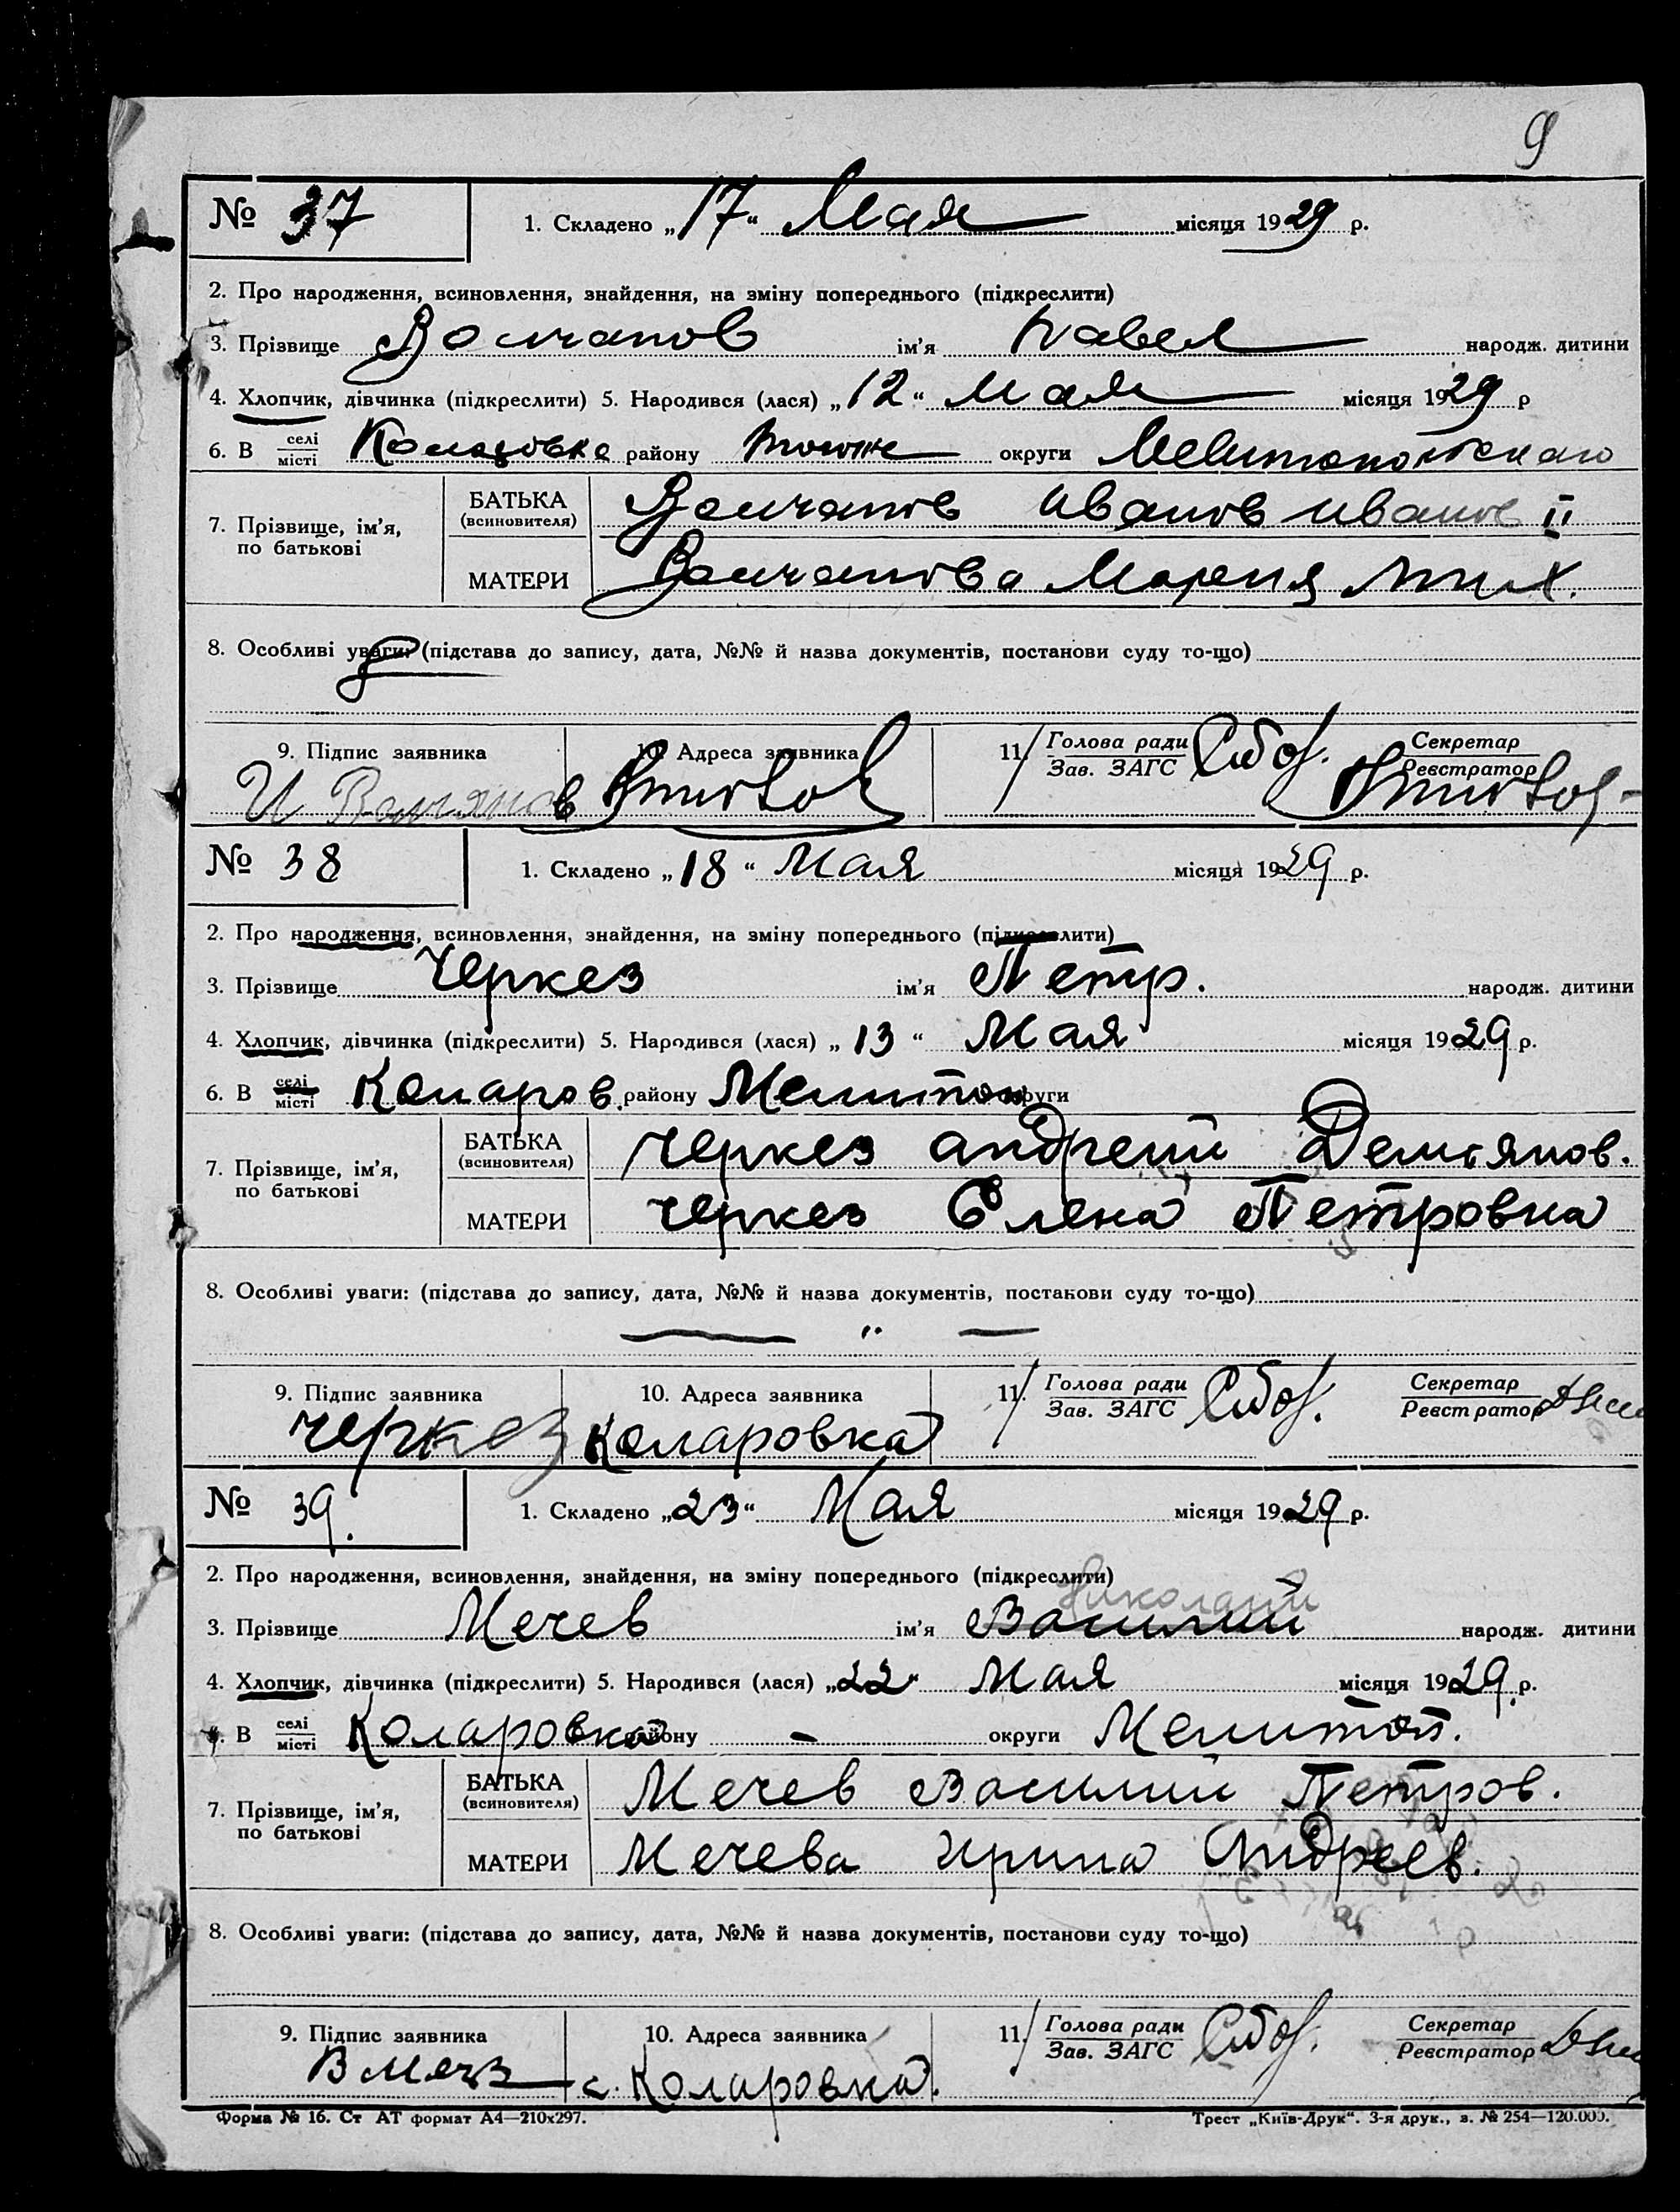 9
№ 37 1. Складено „17“ Мая місяця 1929 р.
2. Про народження, всиновлення, знайдення, на зміну попереднього (підкреслити)
3. Прізвище Волчанов ім’я Павел народж. дитини
4. Хлопчик, дівчинка (підкреслити) 5. Народився (лася) „12“ Мая місяця 1929 р
6. В селі місті району округи Мелитопольскаго
7. Прізвище, ім’я, по батькові
БАТЬКА (всиновителя) Волчанов Иванов Иванов II
МАТЕРИ Волчанова Мария Мих.
8. Особливі уваги: (підстава до запису, дата, №№ й назва документів, постанови суду то-що)
9. Підпис заявника 10. Адреса заявника 11. Голова ради Зав. ЗАГС Секретар Реєстратор
И Волчанов
№ 38 1. Складено „18“ Мая місяця 1929 р.
2. Про народження, всиновлення, знайдення, на зміну попереднього (підкреслити)
3. Прізвище Черкез ім’я Петр. народж. дитини
4. Хлопчик, дівчинка (підкреслити) 5. Народився (лася) „13“ Мая місяця 1929 р.
6. В селі місті Коларов. району Мелитоп округи
7. Прізвище, ім’я, по батькові
БАТЬКА (всиновителя) Черкез Андрей Демьянов.
МАТЕРИ Черкез Елена Петровна
8. Особливі уваги: (підстава до запису, дата, №№ й назва документів, постанови суду то-що)
— “ —
9. Підпис заявника 10. Адреса заявника 11. Голова ради Зав. ЗАГС Секретар Реєстратор
Черкез Коларовка
№ 39. 1. Складено „23“ Мая місяця 1929 р.
2. Про народження, всиновлення, знайдення, на зміну попереднього (підкреслити)
Николай
3. Прізвище Мечев ім’я Василий народж. дитини
4. Хлопчик, дівчинка (підкреслити) 5. Народився (лася) „22“ Мая місяця 1929 р.
6. В селі місті Коларовка району - округи Мелитоп.
7. Прізвище, ім’я, по батькові
БАТЬКА (всиновителя) Мечев Василий Петров.
МАТЕРИ Мечева Ирина Андреев.
8. Особливі уваги: (підстава до запису, дата, №№ й назва документів, постанови суду то-що)
9. Підпис заявника 10. Адреса заявника 11. Голова ради Зав. ЗАГС Секретар Реєстратор
с. Коларовка.
Форма № 16. Ст АТ формат А4—210х297. Трест „Київ-Друк“. 3-я друк., з. № 254—120.000.